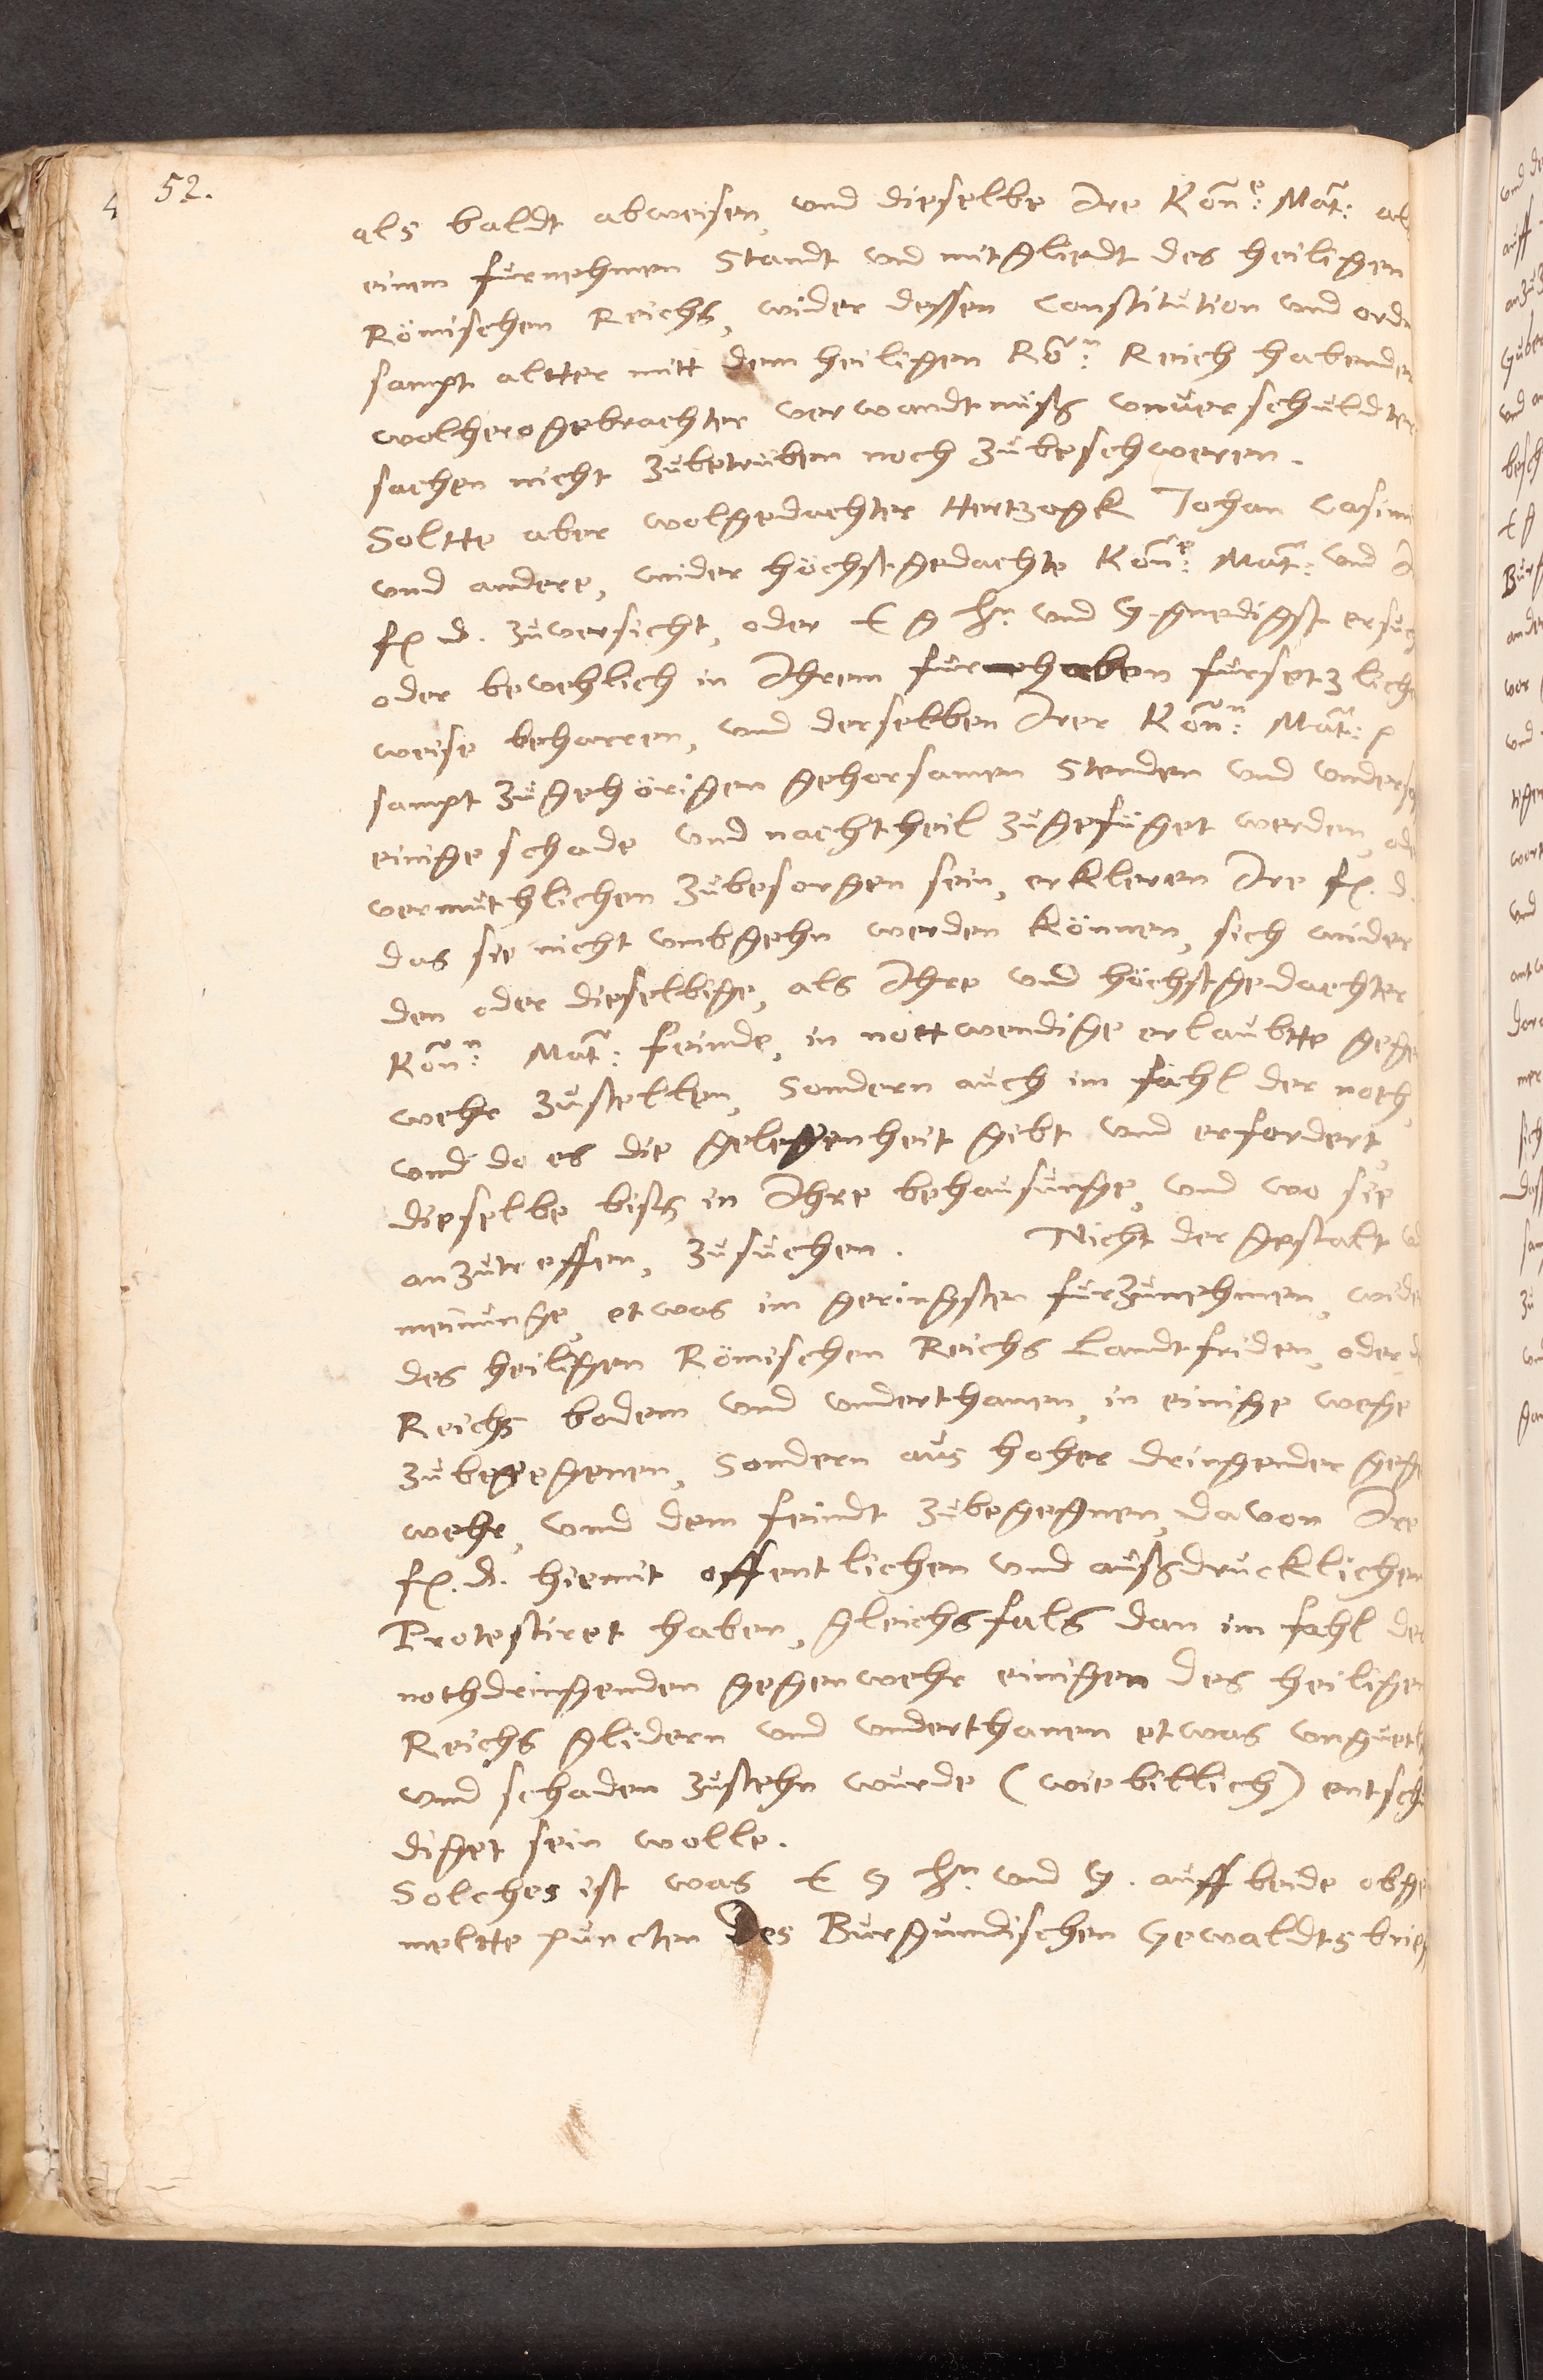 52.
als baldt abweisen, und dieselbe Ire Kön:e Mat: al
einem fürnehmen Standt und mitgliedt des heiligen
Römischen Reichs, wider dessen Constitution und ordn
sampt altter mitt dem heiligen Rö:n Reich habenden
wolherogebrachter verwandtnüß unverschuldter
sachen nicht zubetrüben noch zubeschweren.
Soltte aber wolgedachter Hertzogk Johan Casimi
und andere, wider höchstgedachte Kön:e Mat: und I
fr. d. zuversicht, oder E g hn und G. gnedigst ersuch
oder bewehlich in Ihrem fürhaben fürsetzliche
weise beharren, und derselben Irer Kön:n Mat: p
sampt zugehörigen gehorsamen Stenden und unders
einige schade und nachtheil zugefüget werden, ode
vermuthlichen zubesorgen sein, erkleren Ire fr. d.
das sie nicht umbgehn werden können, sich wider
den oder dieselbige, als Ihre und höchstgedachter
Kön:n Mat: feinde, in nottwendige erlaubtte gege
wehr zustellen, Sondern auch im fahl der noth,
und do es die gelegenheit gibt und erfordert,
dieselbe biß in Ihre behausunge, und wo sie
anzutreffen, zusuchen. Nicht der gestalt u
meinunge, etwas im geringsten fürzunehmen, wide
des heiligen Römischen Reichs Landtfriden, oder d
Reichs bodem und underthanen, in einige wege
zubegegenen, Sondern aus hoher dringender gege
wehr, und dem feindt zubegegnen, davon Ire
fr. d. hiemit offentlichen und außdrucklichen
Protestiret haben, gleichsfals dan im fahl der
nothdringenden gegenwehr einigen des heiligen
Reichs glidern und underthanen etwas
und schaden zustehn wurde (wie billich) entsche
diget sein wolle.
Solches ist was E g hn und G. auff beide obge
meltte puncten Des Burgundischen Gewaldtsbrie